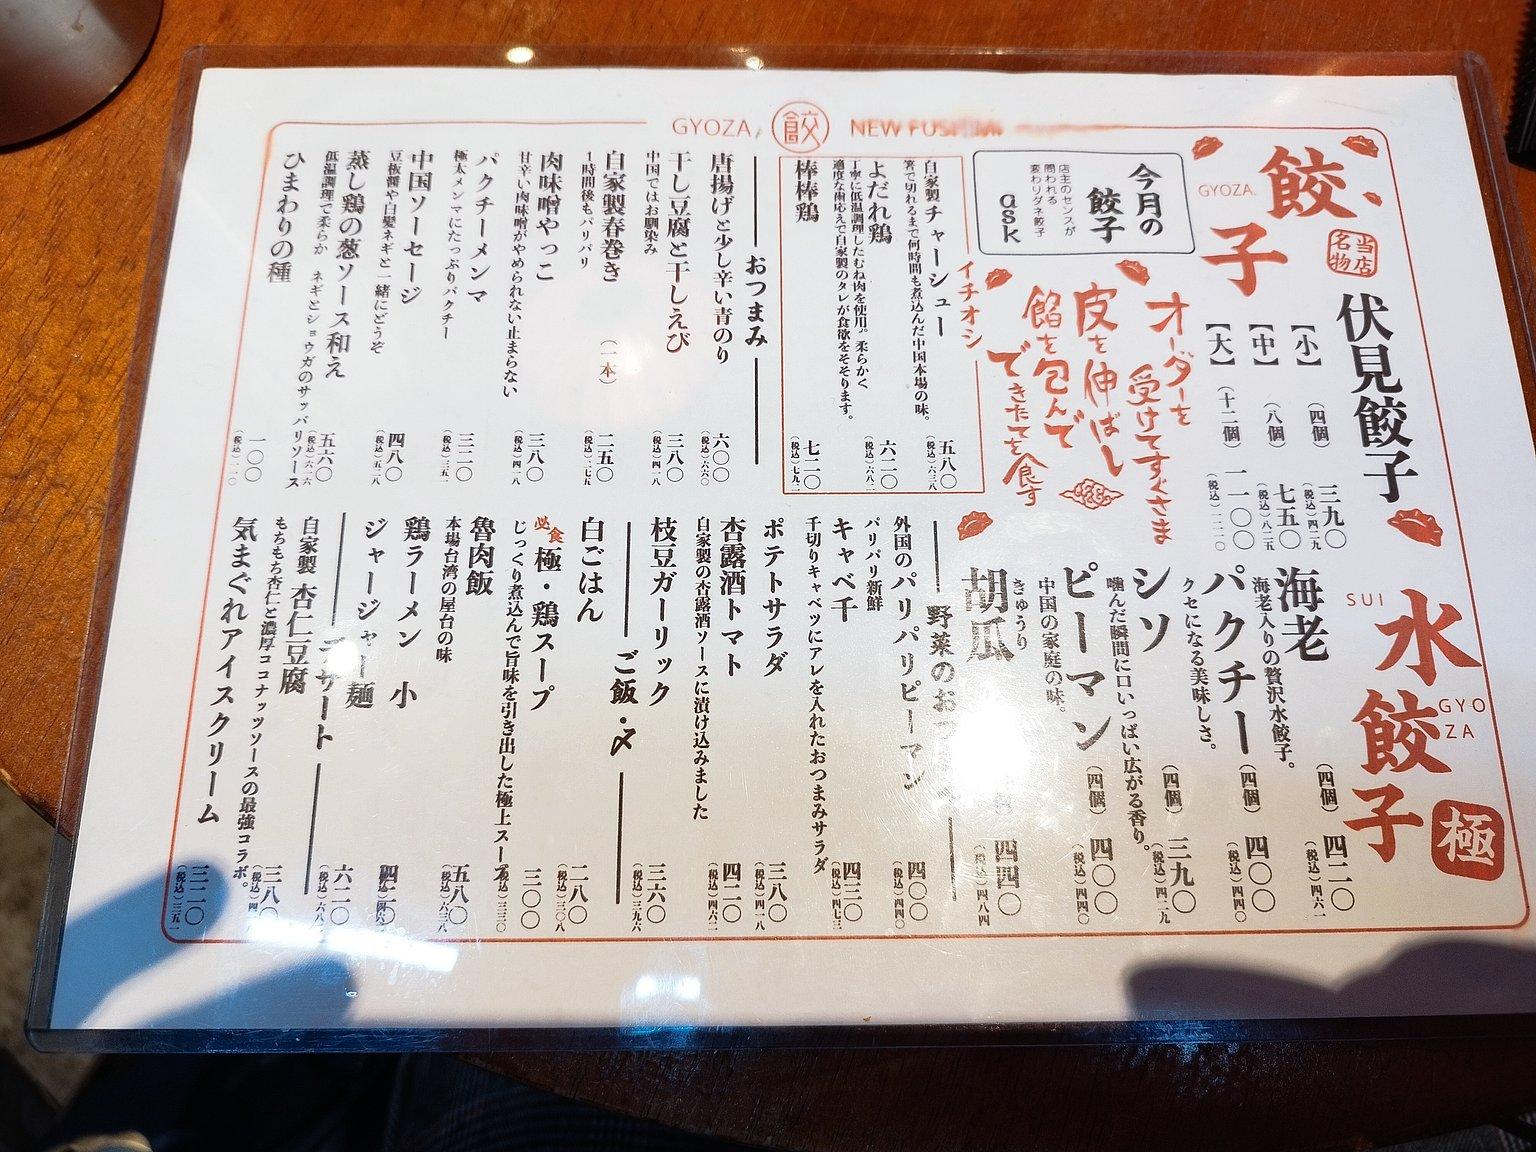 GYOZA 餃 NEW
餃子
GYOZA.
当店名物
伏見餃子
【小】（四個）三九〇（税込）四二九
【中】（八個）七五〇（税込）八二五
【大】（十二個）一一〇〇（税込）一二一〇
オーダーを
受けてすぐさま
皮を伸ばし
餡を包んで
できたてを食す
今月の
餃子
店主のセンスが
問われる
変わりダネ餃子
ask
イチオシ
自家製チャーシュー 五八〇（税込）六三八
箸で切れるまで何時間も煮込んだ中国本場の味。
よだれ鶏 六二〇（税込）六八二
丁寧に低温調理したむね肉を使用。柔らかく
適度な歯応えで自家製のタレが食欲をそそります。
棒棒鶏 七二〇（税込）七九二
おつまみ
唐揚げと少し辛い青のり 六〇〇（税込）六六〇
干し豆腐と干しえび 三八〇（税込）四一八
中国ではお馴染み
自家製春巻き（一本） 二五〇（税込）二七五
1時間後もパリパリ
肉味噌やっこ 三八〇（税込）四一八
甘辛い肉味噌がやめられない止まらない
パクチーメンマ 三二〇（税込）三五二
極太メンマにたっぷりパクチー
中国ソーセージ 四八〇（税込）五二八
豆板醤や白髪ネギと一緒にどうぞ
蒸し鶏の葱ソース和え 五六〇（税込）六一六
低温調理で柔らか ネギとショウガのサッパリソース
ひまわりの種 一〇〇（税込）一一〇
水餃子
SUI
GYO
ZA
極
海老（四個）四二〇（税込）四六二
海老入りの贅沢水餃子。
パクチー（四個）四〇〇（税込）四四〇
クセになる美味しさ。
シソ（四個）三九〇（税込）四二九
噛んだ瞬間に口いっぱい広がる香り。
ピーマン（四個）四〇〇（税込）四四〇
中国の家庭の味。
きゅうり
胡瓜 四四〇（税込）四八四
野菜のおつ
外国のパリパリピーマン 四〇〇（税込）四四〇
パリパリ新鮮
キャベ千 四三〇（税込）四七三
千切りキャベツにアレを入れたおつまみサラダ
ポテトサラダ 三八〇（税込）四一八
杏露酒トマト 四二〇（税込）四六二
自家製の杏露酒ソースに漬け込みました
枝豆ガーリック 三六〇（税込）三九六
ご飯・〆
白ごはん 二八〇（税込）三〇八
必食 極・鶏スープ 三〇〇（税込）三三〇
じっくり煮込んで旨味を引き出した極上スープ
魯肉飯 五八〇（税込）六三八
本場台湾の屋台の味
鶏ラーメン 小
ジャージャー麺 六二〇（税込）六八二
デザート
自家製 杏仁豆腐 三八〇（税込）
もちもち杏仁と濃厚ココナッツソースの最強コラボ。
気まぐれアイスクリーム 三二〇（税込）三五二